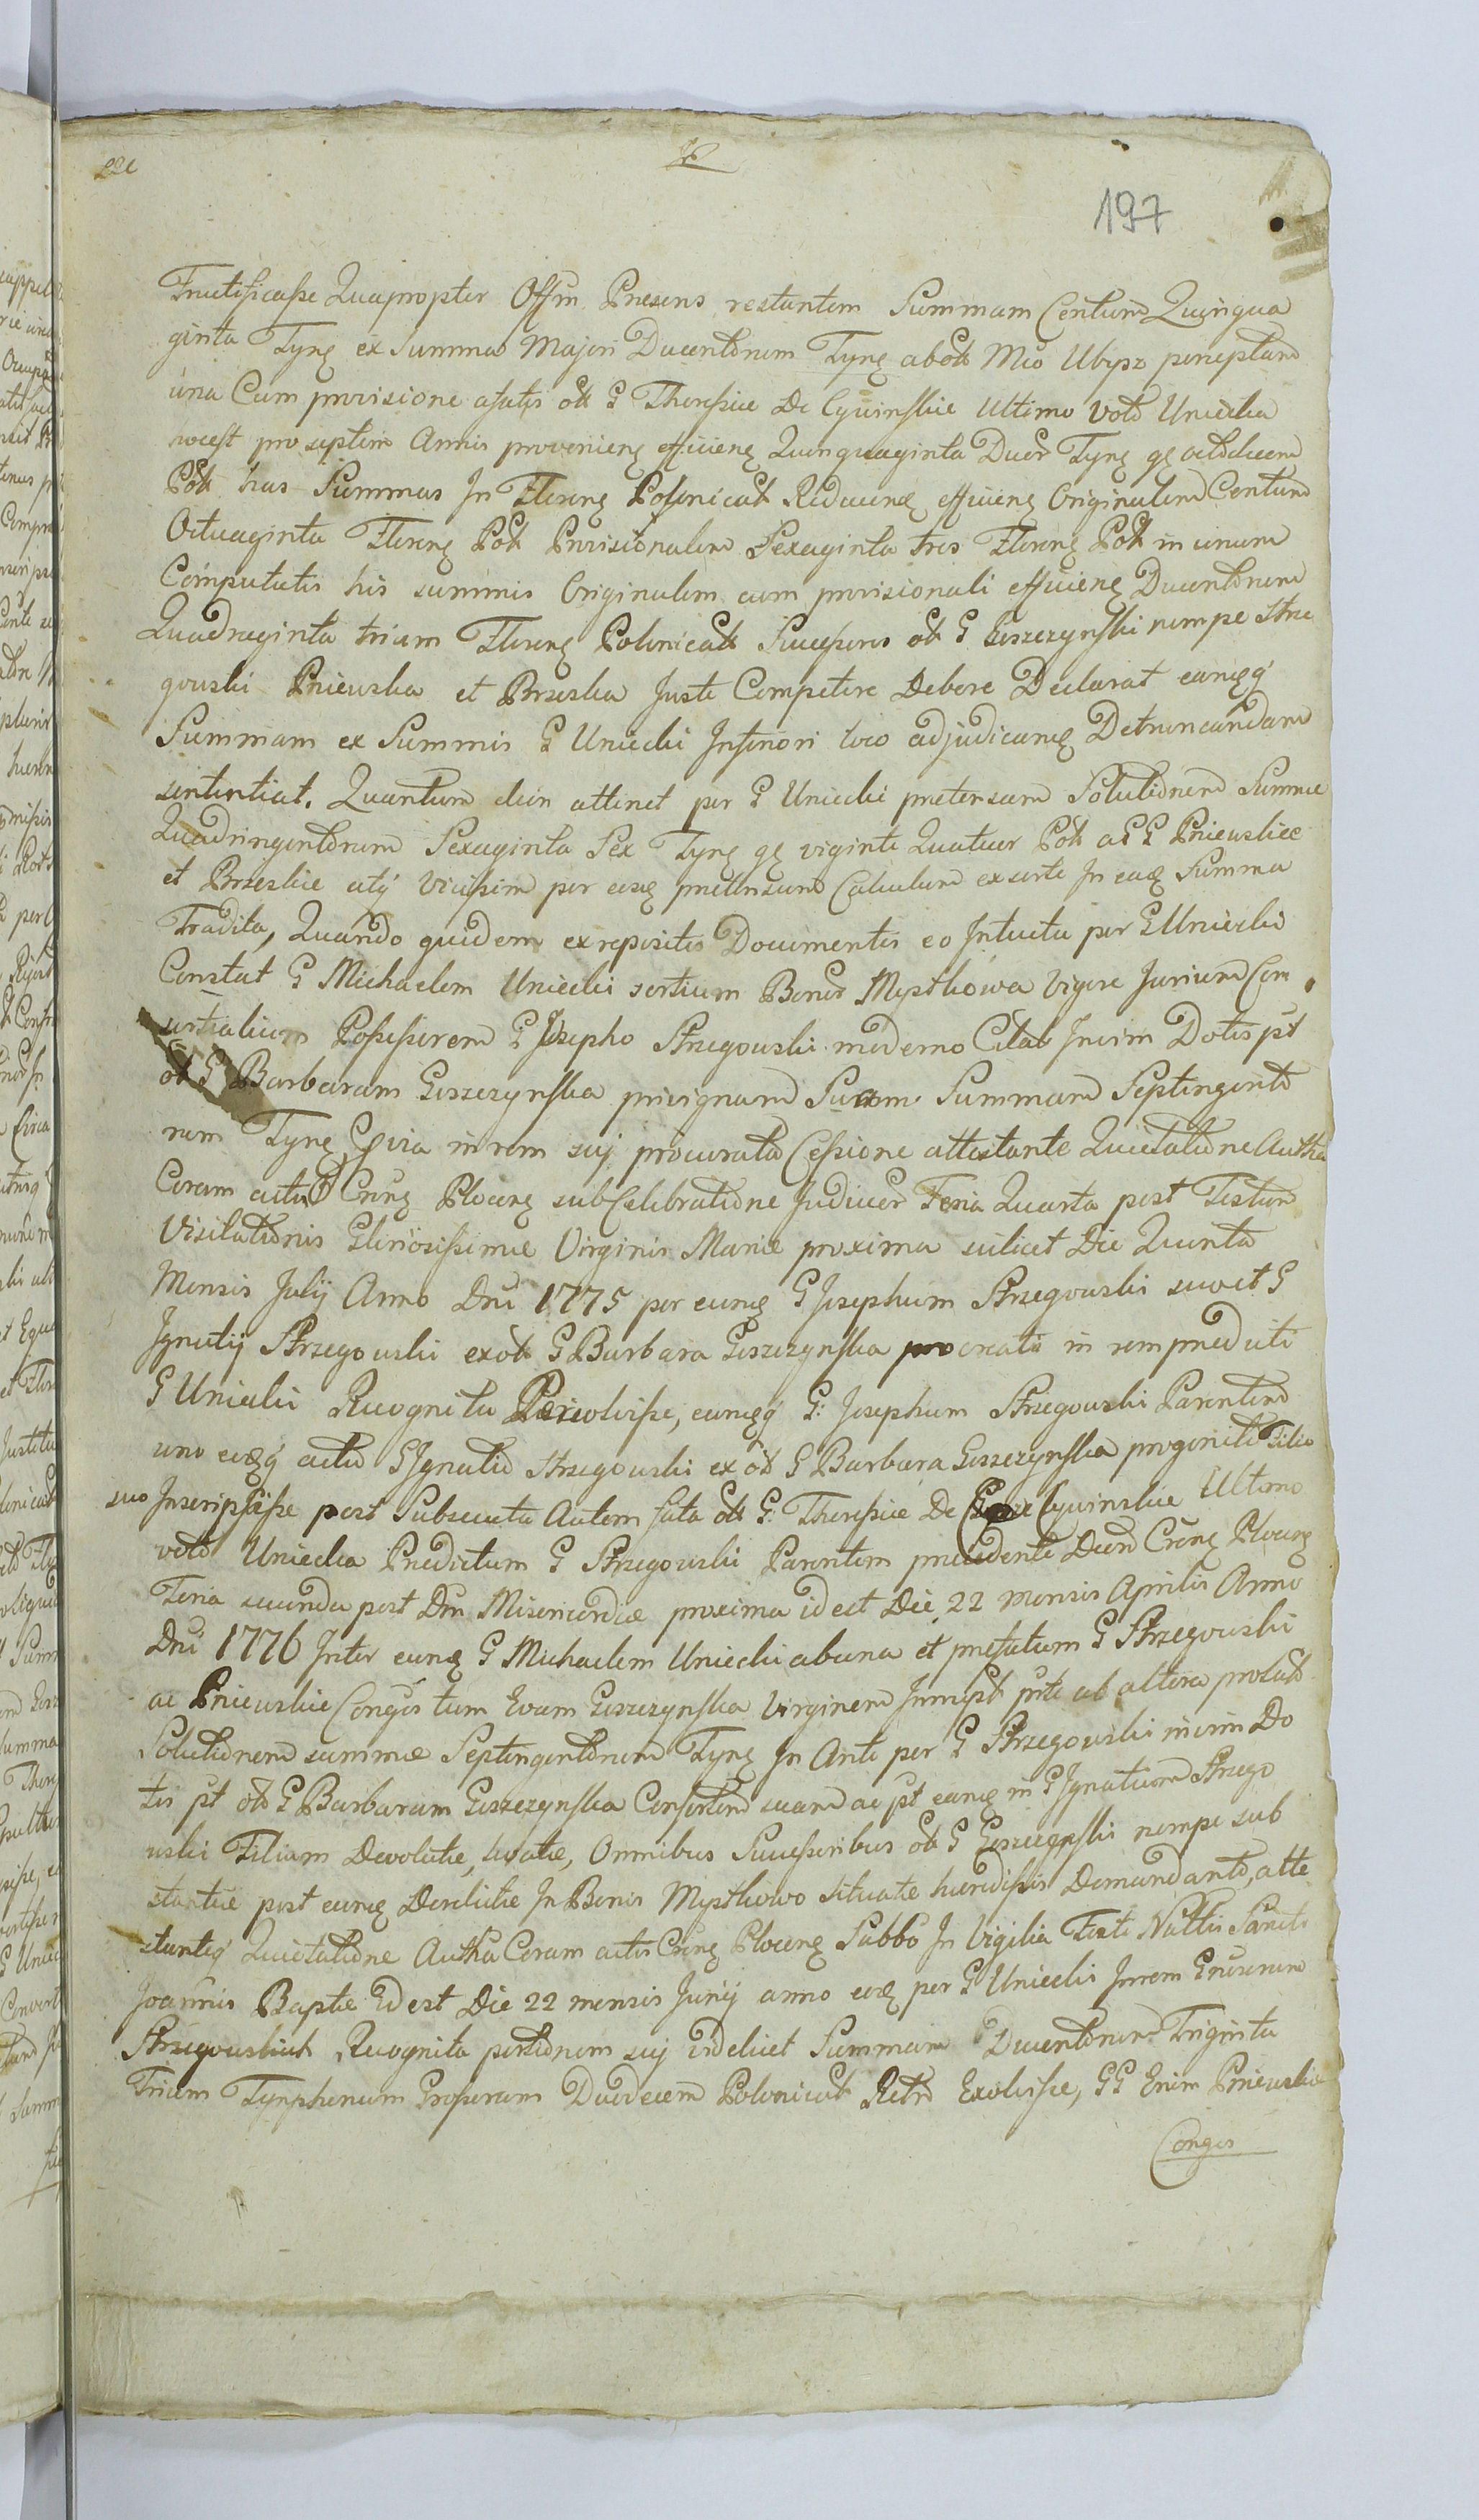 197
Fructificasse Quapropter Offm Presens restantem Summam Centum Quinqua
ginta Tynę ex Summa Majori Ducentorum Tynę abolt Mco Ubysz perceptam
una Cum provisione afatis olt G Theressiæ De Cywinskie Ultimo voto Uniecka
hocest pro septem Annis provenienę efficienę Quinquaginta Duor Tynę gę octodecem
Polt has Summas In Florenę Polonicalt Reducenę efficienę Originalem Centum
Octuaginta Florenę Polt Provisionalem Sexaginta tres Florenę Polt in unum
Computatis his summis Originalem cum provisionali efficienę Ducentorum
Quadraginta trium Florenę Polonicalt Successores olt G Goszczynski nempe Strze
gouski Pnieuska et Brzeska Juste Competere Debere Declarat eamęq
Summam ex Summis G Uniecki Inferiori loco adjudicanę Detruncandam
sententiat. Quantum dein attinet per G Uniecki pretensam Solutionem Summæ
Quadringentorum Sexaginta Sex Tynę gę viginti Quatuor Polt a GG Pnieuskie
et Brzeskie atq vicissim per eosę pretensum Calculum ex sorte In eaę Summa
Tradita, Quando quidem ex repositis Documentis eo Intuitu per G Uniecki
Constat G Michaelem Uniecki sortium Bonor Mystkowa vigore Jurium Con
sortialium Possessorem G Josepho Strzegouski moderno Citat Inrim Dotis pt
olt G Barbaram Goszczynska privignam Suam Summam Septingento
rum Tynę Cvia in rem sui procurata Cessione attestante Quietatione Autha
Coram actis Crenę Plocenę sub Celebratione Judicior Feria Quarta post Festum
Visitationis Gloriosissimæ Virginis Mariæ proxima scilicet Die Quinta
Mensis Julij Anno Dni 1775 per eunę G Josephum Strzegouski suo et G
Ignatij Strzegouski ex olt G Barbara Goszczynska procreati in rem predicti
G Uniecki Recognita Persolvisse, eunęq G: Josephum Strzegouski Parentem
uno eoęq actu G Ignatio Strzegouski ex olt G Barbara Goszczynska progenito Filio
suo Inscripsisse post Subsecuta Autem fata olt G: Theressiæ De Cywinskie Ultimo
voto Uniecka Predictum G Strzegouski Parentem precedente Decro Crenę Plocenę
Feria secunda post Dm Misericordiæ proxima id est Die 22 mensis Aprilis Anno
Dni 1776 Inter eunę G Michaelem Uniecki ab una et prefatum G Strzegouski
ac Pnieuskie Conges tum Evam Goszczynska Virginem prte ab altera prolat
Solutionem summæ Septingentorum Tynę In Ante per G Strzegouski inrim Do
tis pt olt G Barbaram Goszczynska Consortem suam ac pt eamę in G Ignatium Strzego
uski Filium Devolutæ, levatæ, Omnibus Successoribus olt G Goszczynski nempe sub
stantiæ post eunę Derelictæ In Bonis Mystkowo situatæ heredissis Demandanto, atte
stanteq Quietatione Autha Coram actis Crenę Plocenę Sabbo In Vigilia Festi Nattis Sancti
Joannis Baptæ Id est Die 22 mensis Junij anno eoę per G Uniecki Inrem Grosorum
Strzegouskich Recognita portionem sui videlicet Summam Ducentorum Triginta
Trium Tynphonum Grossorum Duodecem Polonicalt Retro Exolvisse, GG Enim Pnieuskie
Conges